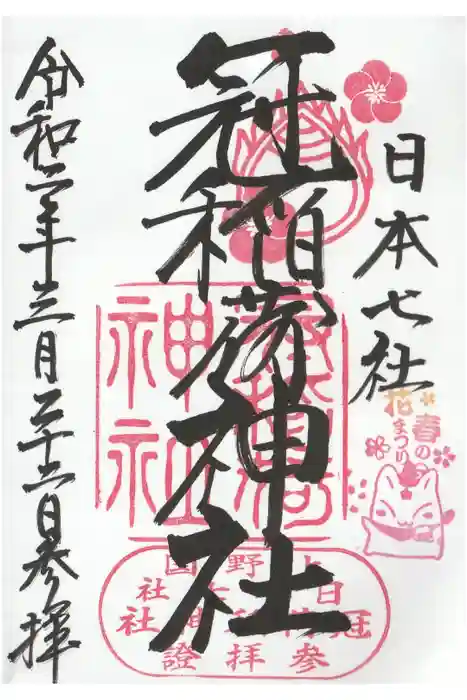 日本七社
冠稲荷神社
令和二年三月二十二日参拝
春の
花まつり
上野國
日本七社
冠稲荷神社
参拝證